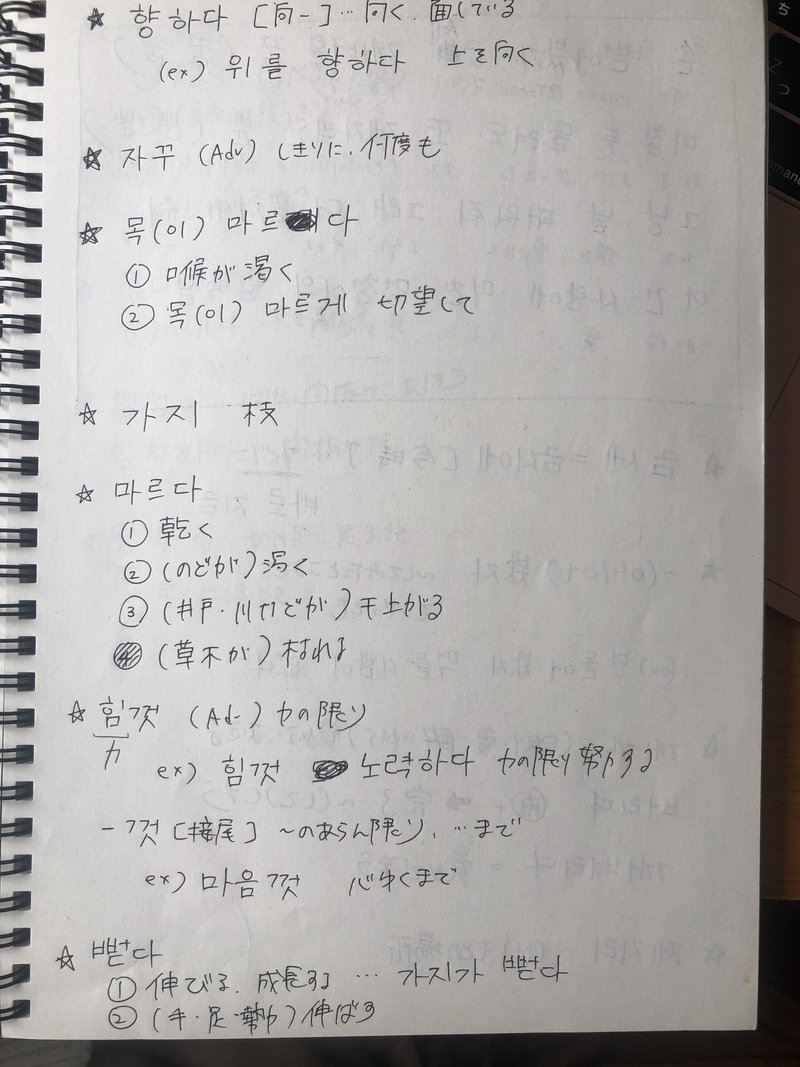 ☆ 향하다 [向-]…向く.面している
(ex) 위를 향하다 上を向く
☆ 자꾸 (Adv) しきりに.何度も
☆ 목(이) 마르다
① 喉が渇く
② 목(이) 마르게 切望して
☆ 가지 枝
☆ 마르다
① 乾く
② (のどが)渇く
③ (井戸・川などが)干上がる
④ (草木が)枯れる
☆ 힘껏 (Ad-) 力の限り
力
ex) 힘껏 노력하다 力の限り努力する
-껏 [接尾] ~のあらん限り.…まで
ex) 마음껏 心ゆくまで
☆ 뻗다
① 伸びる.成長する … 가지가 뻗다
② (手・足・勢力)伸ばす